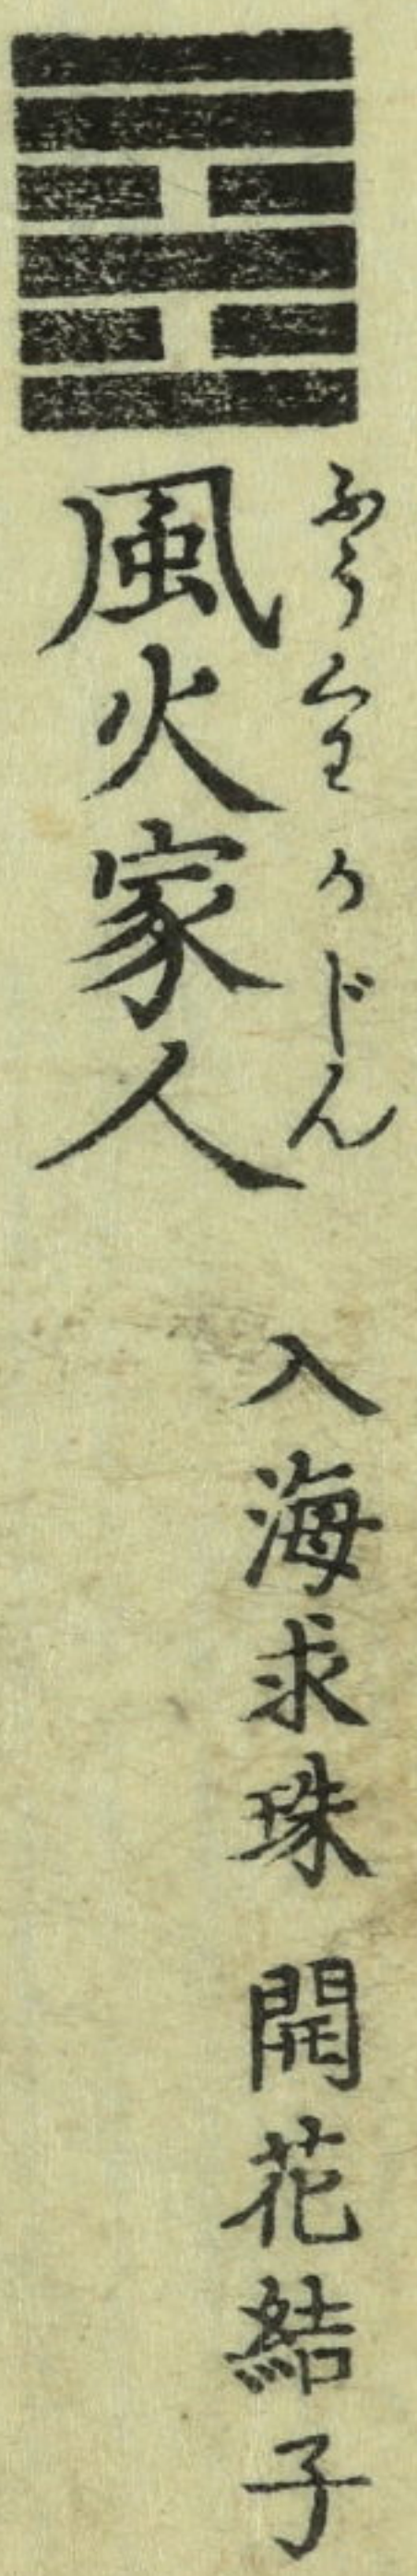 ふうくわかじん
風火家人
入海求珠 開花結子